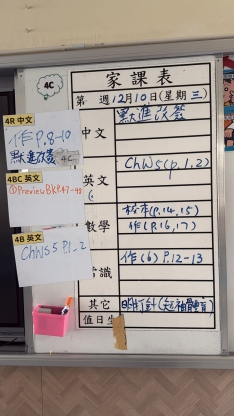 4C
家課表
第 週12月10日(星期三)
4R 中文
作P.8-10
默進改簽
4C
4BC 英文
①Preview BK P.47-48
4B 英文
ChWS5 P.1-2
中文
默進改簽
英文
ChWS(p.1.2)
數學
校本(P.14,15)
作(P.16,17)
常識
作(6) P.12-13
其它
值日生